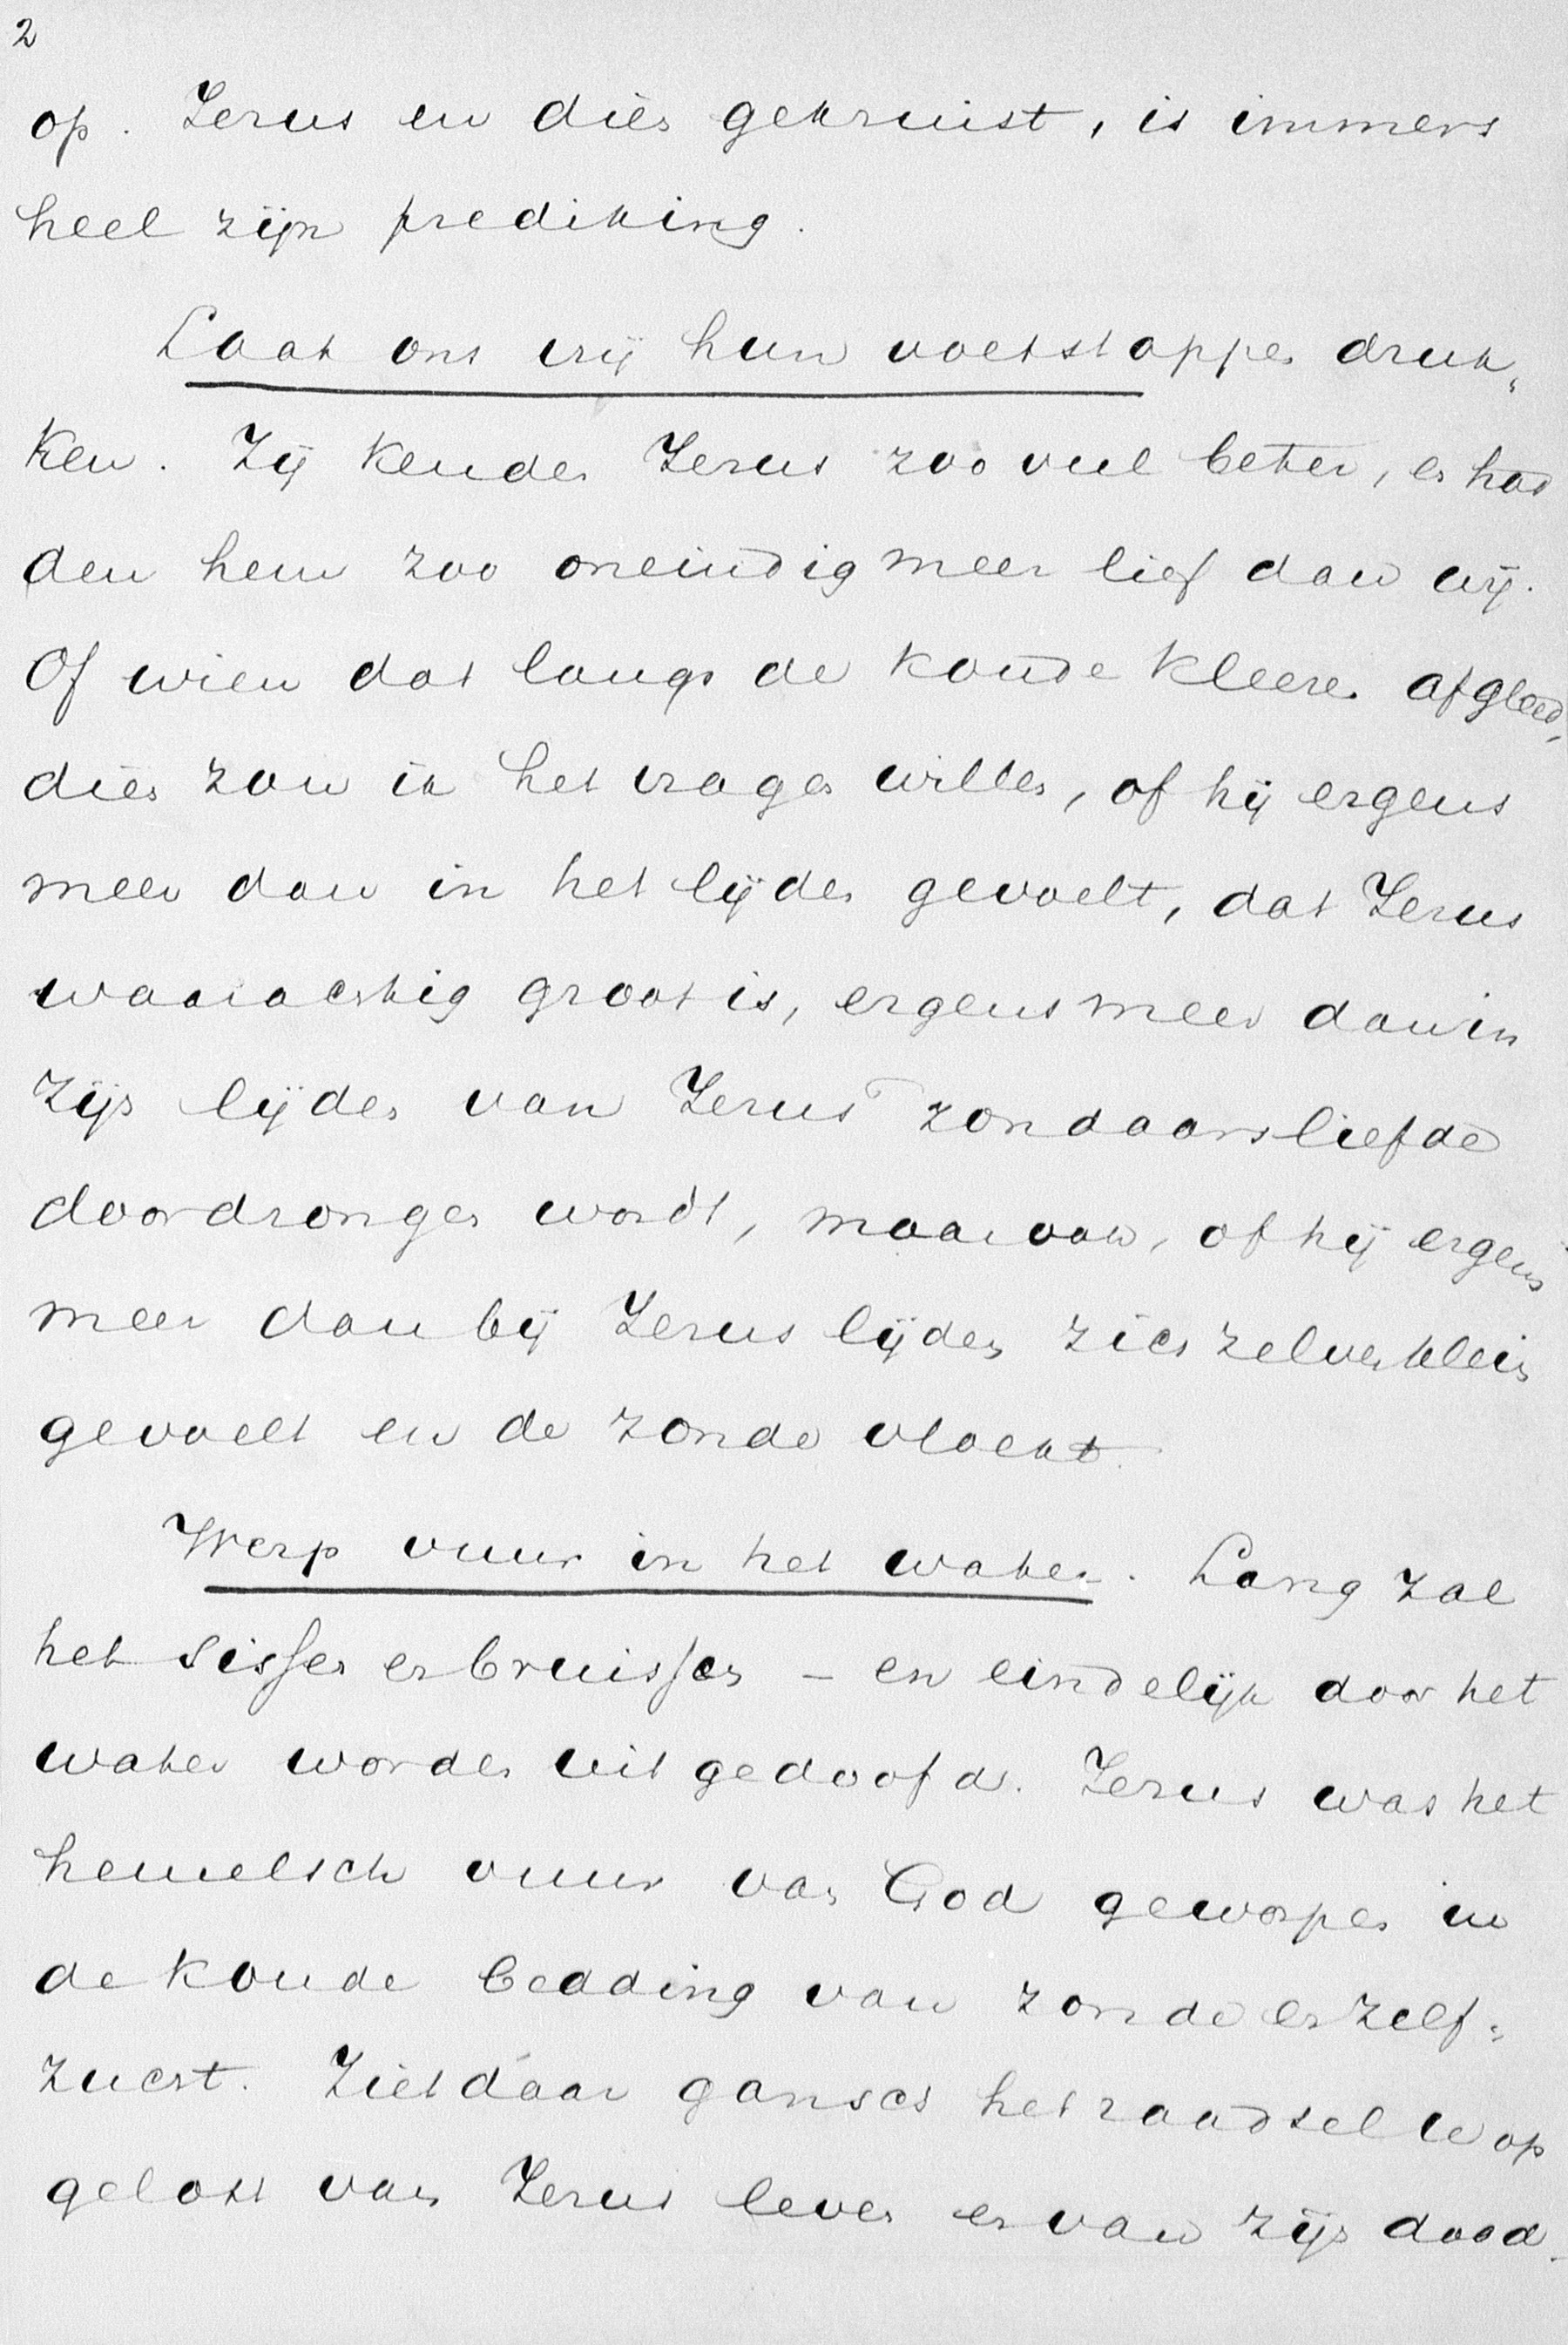 2
op. Jezus en dien gekruist, is immers
heel zijn prediking.
Laat ons vrij hun voetstappen druk„
ken. Zij kenden Jezus zoo veel beter, en had
den hem zoo oneindig meer lief dan wij.
Of wien dat langs de koude kleeren afgleed,
dien zou ik het vragen willen, of hij ergens
meer dan in het lijden gevoelt, dat Jezus
waarachtig groot is, ergens meer dan in
zijn lijden van Jezus zondaarsliefde
doordrongen wordt, maar ook, of hij ergens
meer dan bij Jezus lijden zich zelven klein
gevoelt en de zonde vloekt.
Werp vuur in het water. Lang zal
het sissen en bruissen – en eindelijk door het
water worden uitgedoofd. Jezus was het
hemelsch vuur van God geworpen in
de koude bedding van zonde en zelf:
zucht. Ziet daar gansch het raadsel u op
gelost van Jezus leven en van zijn dood.